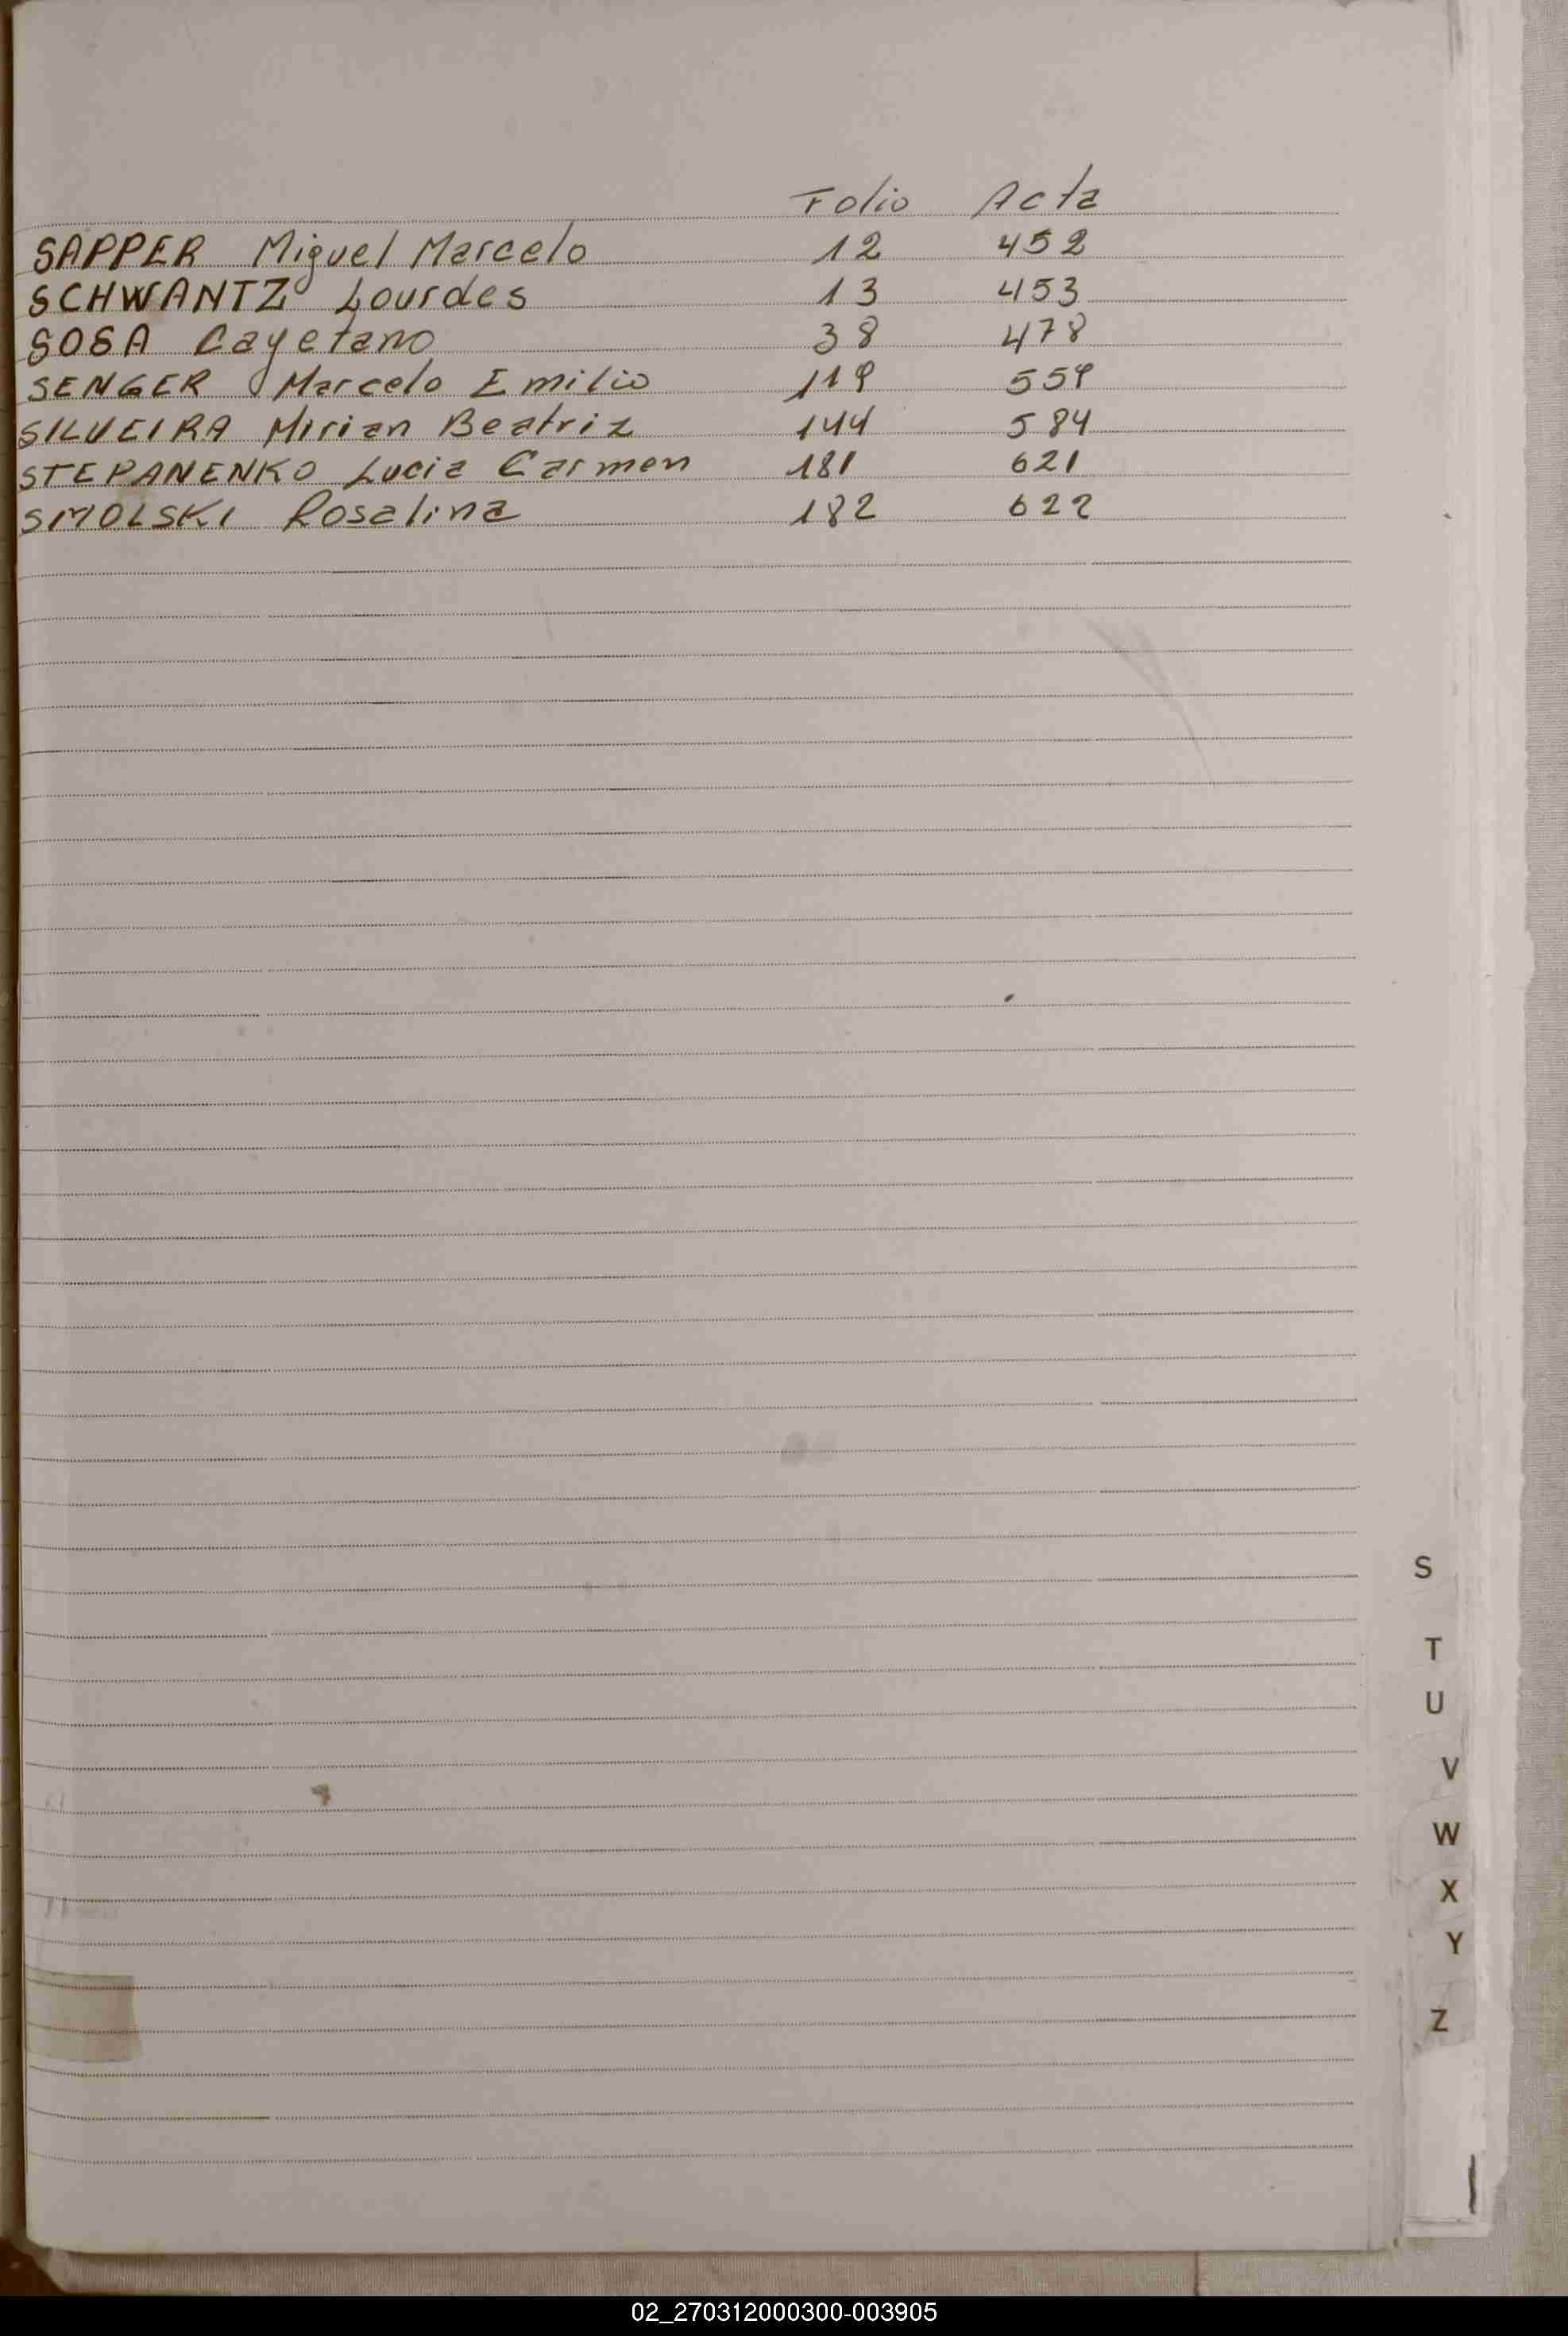 Folio Acta
SAPPER Miguel Marcelo 12 452
SCHWANTZ Lourdes 13 453
SOSA Cayetano 38 478
SENGER Marcelo Emilio 119 559
SILVEIRA Mirian Beatriz 144 584
STEPANENKO Lucia Carmen 181 621
SMOLSKI Rosalina 182 622
S
T
U
V
W
X
Y
Z
02_270312000300-003905